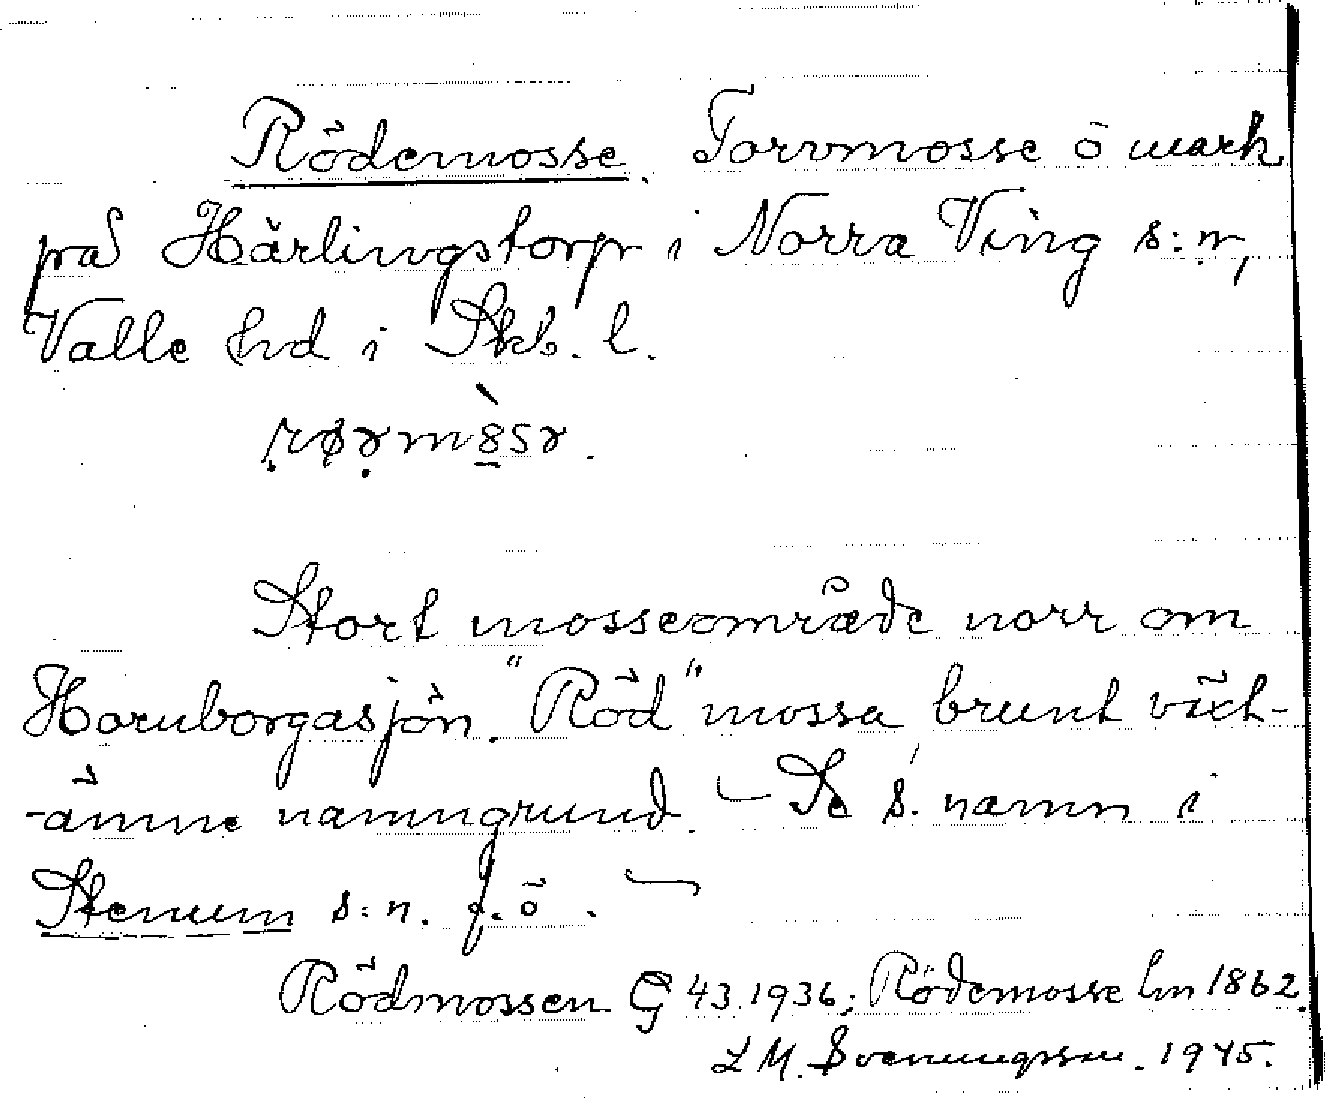 Rödemosse. Torvmosse ö mark
på Härlingstorp i Norra Ving s:n,
Valle hd i Skb. l.
Stort mosseområde norr om
Hornborgasjön. "Röd" mossa brunt växt-
-ämne namngrund. – Se s. namn i
Stenum s:n. f. ö. –
Rödmossen G 43.1936; Rödemosse lm 1862.
L M. Svenungsson. 1945.